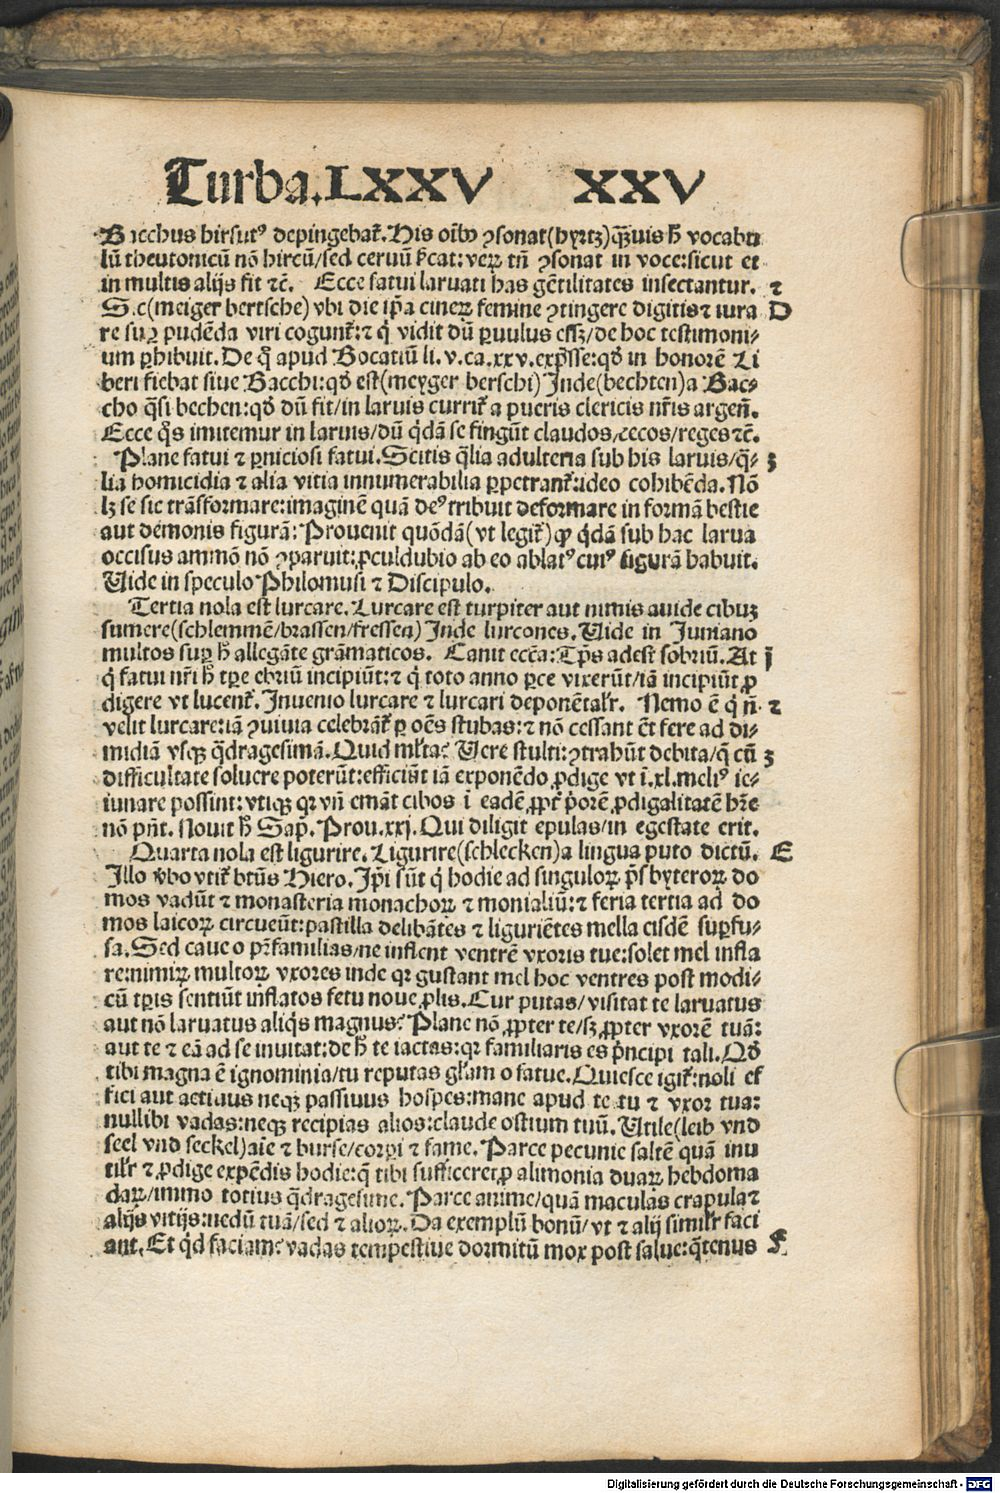 Turba. LXXV XXV
Bacchus hirsutꝰ depingebat᷑. His oīb⁹ ꝯsonat (hyrtz) qᷓuis h̄ vocabu
lū theutonicū nō hircū / sed ceruū s̄icat: veꝝ tn̄ ꝯsonat in voce: sicut et
in multis alijs fit ⁊c̄. Ecce fatui laruati has gētilitates insectantur. 2
S. c (meiger bertsche) vbi die ip̄a cineꝝ femine ꝯtingere digitis ⁊ iura D
re suꝑ pudēda viri cogunt᷑: ⁊ q̇ vidit dū puulus essꝫ / de hoc testimoni⸗
um ꝑhibuit. De q̄ apud Bocatiū li. v. ca. xxv. exp̄sse: qđ in honorē Li
beri fiebat siue Bacchi: qđ est (meyger berschi) Inde (bechten) a Bac⸗
cho q̄si bechen: qđ dū fit / in laruis currit᷑ a pueris clericis nr̄is argeñ.
Ecce q̄s imitemur in laruis / dū q̇dā se fingūt claudos / cecos / reges ⁊c̄.
Plane fatui ⁊ ꝑniciosi fatui. Scitis q̄lia adulteria sub his laruis / q̄⸗ 3
lia homicidia ⁊ alia vitia innumerabilia ꝑpetrant᷑: ideo cohibēda. Nō
lꝫ se sic trāsformare: imaginē quā deꝰ tribuit deformare in formā bestie
aut demonis figurā: Prouenit quōdā (vt legit᷑) ꝙ q̇dā sub hac larua
occisus ammō nō ꝯparuit: ꝓculdubio ab eo ablatꝰ cuiꝰ figurā habuit.
Uide in speculo Philomusi ⁊ Discipulo.
Tertia nola est lurcare. Lurcare est turpiter aut nimis auide cibuꝫ
sumere (schlemmē / brassen / fressen) Inde lurcones. Uide in Juniano
multos suꝑ h̄ allegāte grāmaticos. Canit ecc̄a: Tp̄s adest sobriū. At j
q̇ fatui nr̄i h̄ tꝑe ebriū incipiūt: ⁊ q̇ toto anno ꝑce vixerūt / iā incipiūt ꝓ
digere vt lucent᷑. Inuenio lurcare ⁊ lurcari deponētalr̄. Nemo ē q̇ ñ 2
velit lurcare: iā ꝯuiuia celebrāt᷑ ꝑ oēs stubas: ⁊ nō cessant ēt fere ad di⸗
midiā vsqꝫ q̄dragesimā. Quid ml̄ta? Uere stulti: ꝯtrahūt debita / q̄ cū 3
difficultate soluere poterūt: efficiūt iā exponēdo ꝓdige vt ī. xl. meliꝰ ie⸗
iunare possint: vtiqꝫ qꝛ vñ emāt cibos ī eadē ꝓpt᷑ p̓orē ꝓdigalitatē hr̄e
nō pn̄t. Nouit h̄ Sap̄. Prou. xxj. Qui diligit epulas / in egestate erit.
Quarta nola est ligurire. Ligurire (schlecken) a lingua puto dictū. E
Illo v̄bo vtit᷑ bt̄us Hiero. Ip̄i sūt q̇ hodie ad singuloꝝ p̄sbyteroꝝ do
mos vadūt ⁊ monasteria monachoꝝ ⁊ monialiū: ⁊ feria tertia ad do
mos laicoꝝ circueūt: pastilla delibātes ⁊ liguriētes mella eisdē suꝑfu⸗
sa. Sed caue o pr̄familias / ne inflent ventrē vxoris tue: solet mel infla
re: nimiꝝ multoꝝ vxores inde qꝛ gustant mel hoc ventres post modi⸗
cū tꝑis sentiūt inflatos fetu noue ꝓlis. Cur putas / visitat te laruatus
aut nō laruatus aliq̇s magnus? Plane nō ꝓpter te / sꝫ ꝓpter vxorē tuā:
aut te ⁊ eā ad se inuitat: de h̄ te iactas: qꝛ familiaris es p̓ncipi tali. Qđ
tibi magna ē ignominia / tu reputas gl̄iam o fatue. Quiesce igit᷑: noli ef
fici aut actiuus neqꝫ passiuus hospes: mane apud te tu ⁊ vxor tua:
nullibi vadas: neqꝫ recipias alios: claude ostium tuū. Utile (leib vnd
seel vnd seckel) aīe ⁊ burse / corꝑi ⁊ fame. Parce pecunie saltē quā inu
tilr̄ ⁊ ꝓdige expēdis hodie: q̄ tibi sufficeret ꝓ alimonia duaꝝ hebdoma
daꝝ / immo totius q̄dragesime. Parce anime / quā maculas crapula ⁊
alijs vitijs: nedū tuā / sed ⁊ alioꝝ. Da exemplū bonū / vt ⁊ alij similr̄ faci
ant. Et q̇d faciam? vadas tempestiue dormitū mox post salue: q̄tenus F
Digitalisierung gefördert durch die Deutsche Forschungsgemeinschaft - DFG